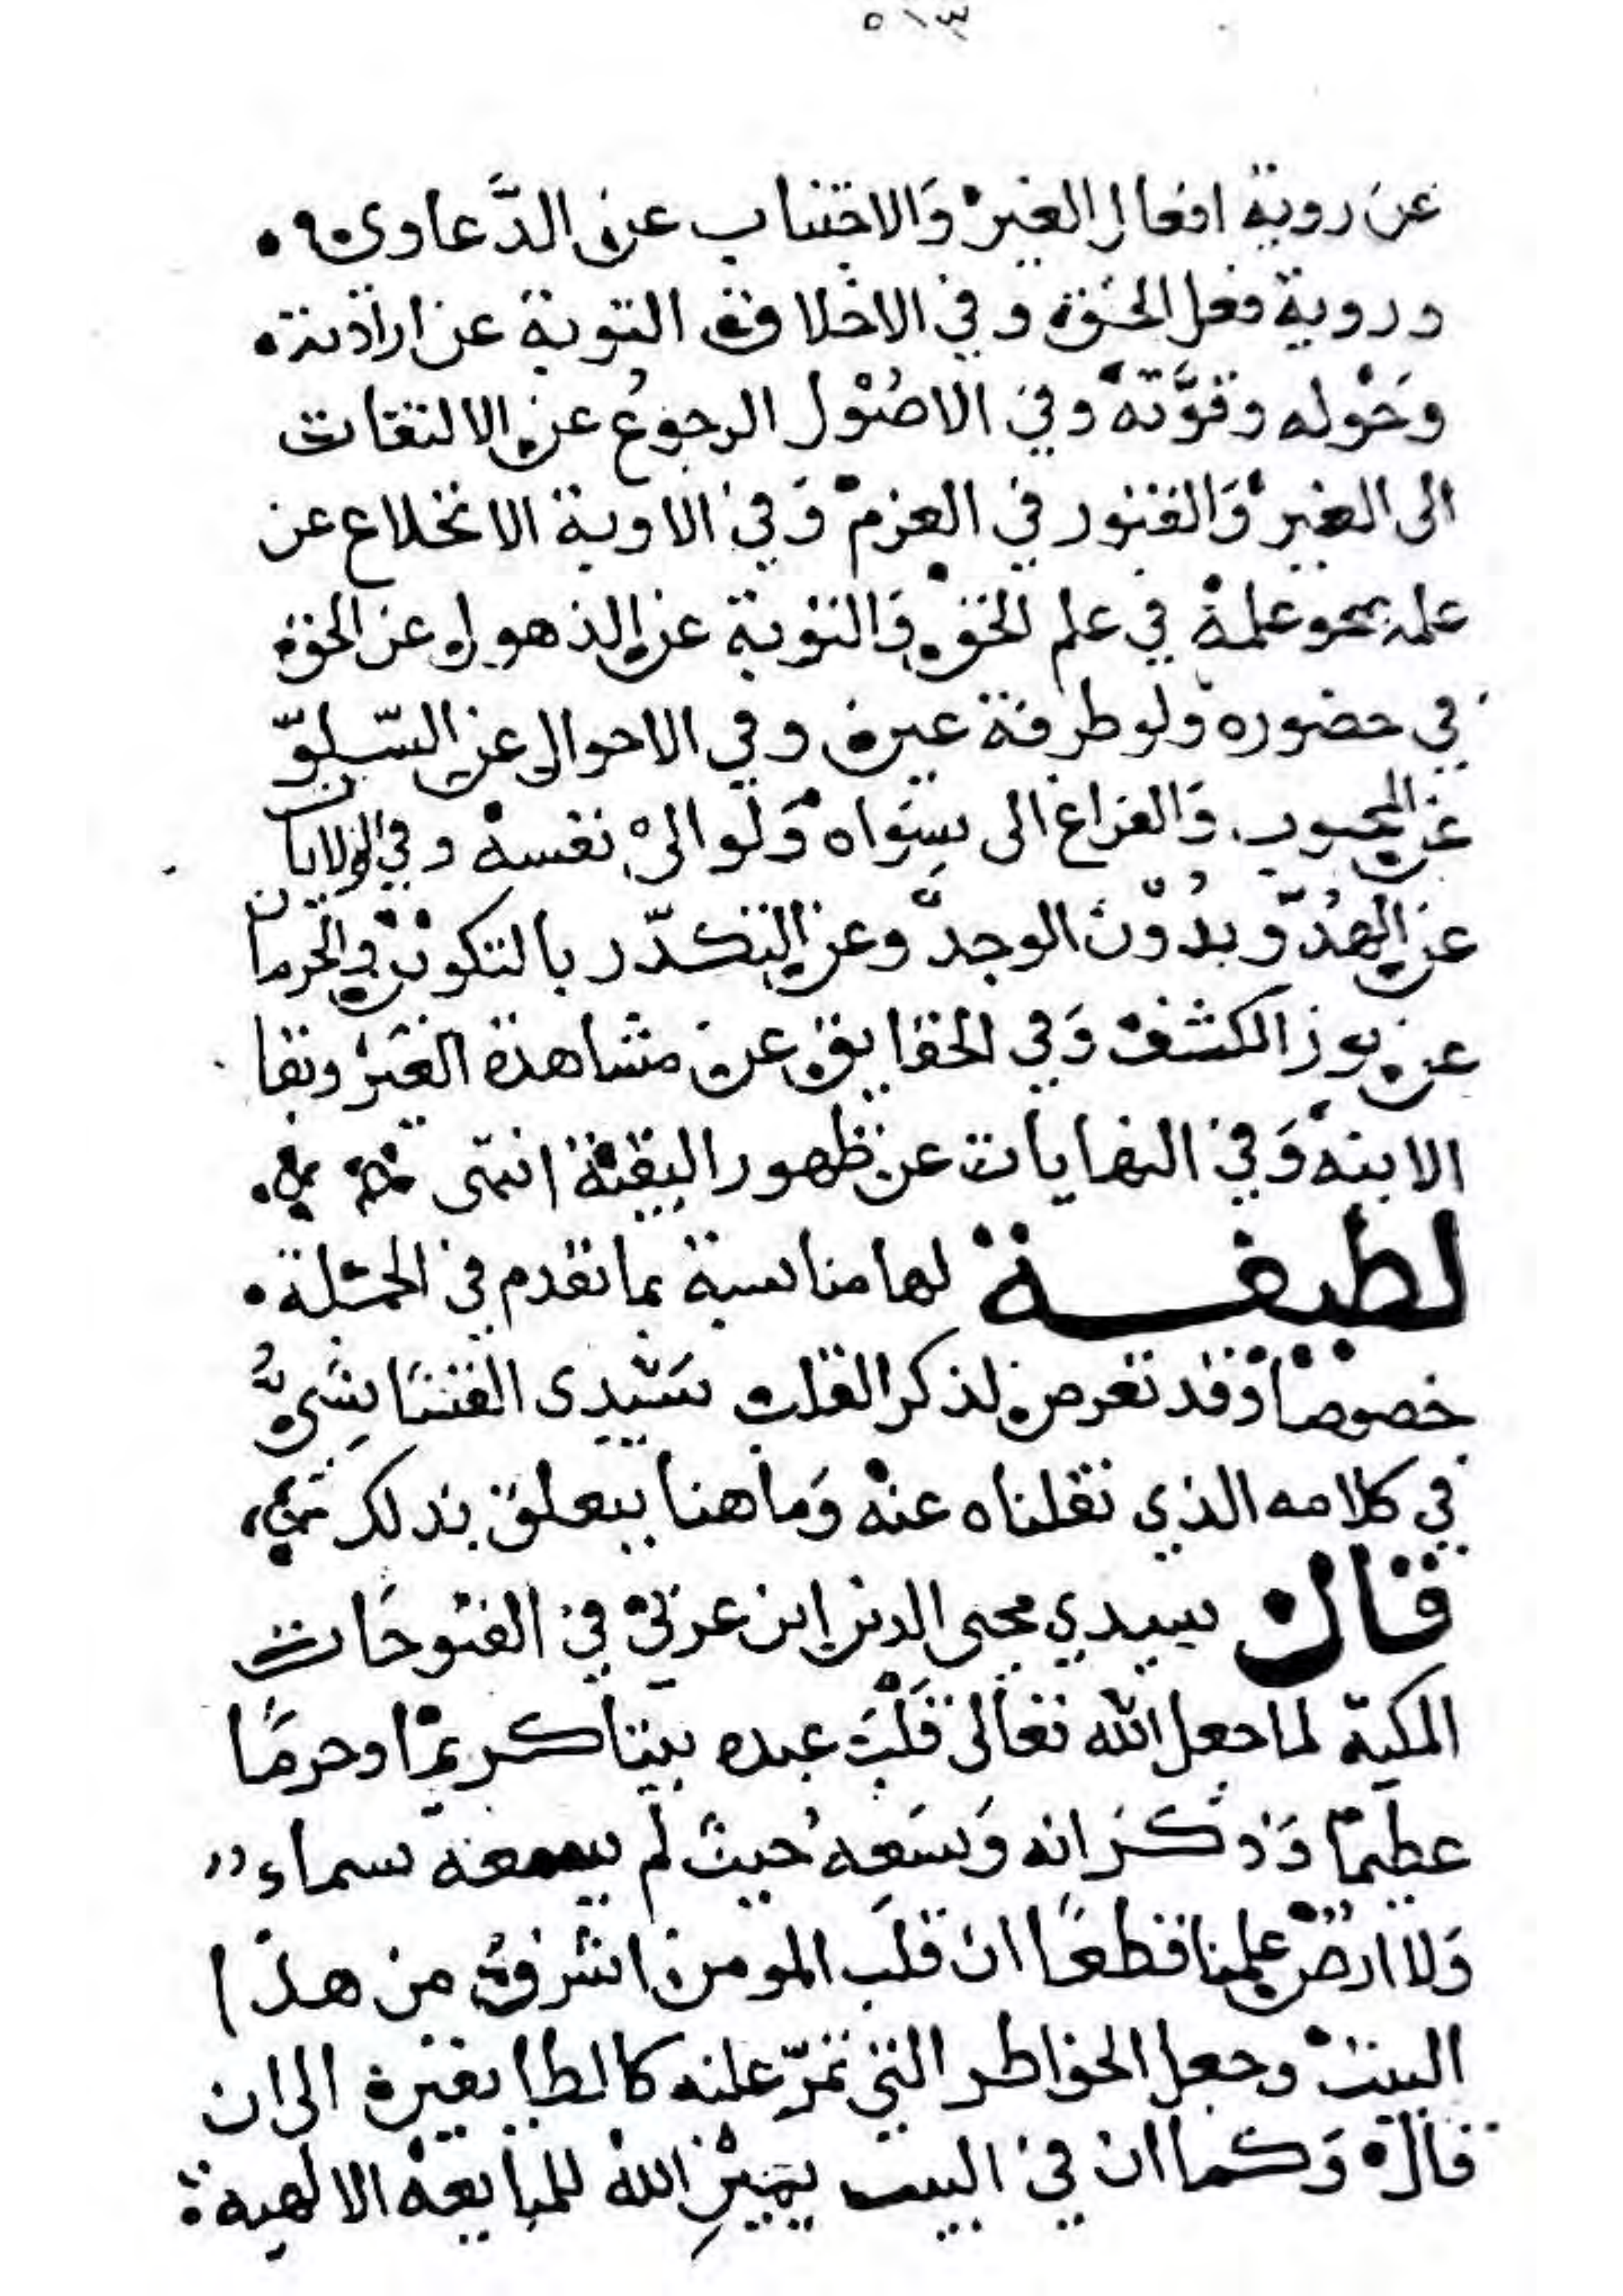 ٥١٣
عن روية افعال الغير والاجتناب عن الدَّعاوى
وروية فعل الحق وفي الاخلاق التوبة عن ارادته
وحَوْله وقوَّته وفي الاصُوْل الرجوعُ عن الالتفات
الى الغير وَالفتور في العزم وَفي الاوية الانخلاع عن
علمه بمحو علمه في علم الحق وَالتوبة عن الذهول عن الحق
في حضوره ولو طرفة عين وفي الاحوال عن السّلوّ
عن المحبوب وَالفراغ الى سواه وَلو الى نفسه وفي الولايات
عن الهدُوّ بدُوْن الوجد وعن التكدّر بالتكون في الحرمان
عن نور الكشف وَفي الحقايق عن مشاهدة الغير وبقا
الانية وَفي النهايات عن ظهور البقية انتهى
لطيفة لها مناسبة بما تقدم في الجملة
خصوصا وقد تعرض لذكر القلب سَيّدى القشاشيُّ
في كلامه الذي نقلناه عنه وَما هنا يتعلق بذلك
قال سيدي محيى الدين ابن عربي في الفتوحَات
المكية لما جعل الله تعَالى قَلْبَ عبده بيتا كريمًا وحرمًا
عظيمًا وَذكَرَ انه وَسَعه حيث لم يسعه سماء
وَلا ارض علمنا قطعًا ان قلبَ المومن اشرف من هذا
البيت وجعل الخواطر التي تمرّ عليه كالطايفين الى ان
قال وَكما ان في البيت يمين الله للمبايعة الالهية